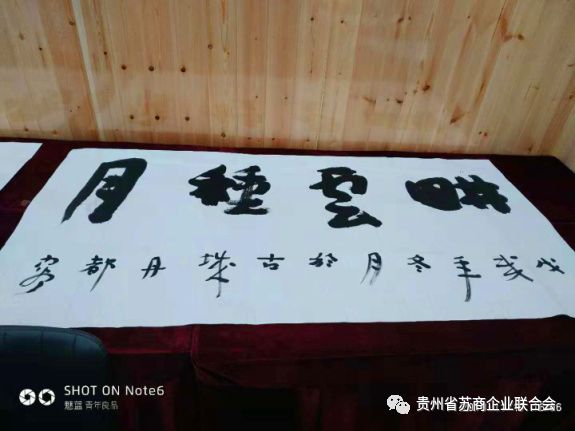 畊雲種月
戊戌年冬月於古城丹都
SHOT ON Note6
魅蓝 青年良品
贵州省苏商企业联合会